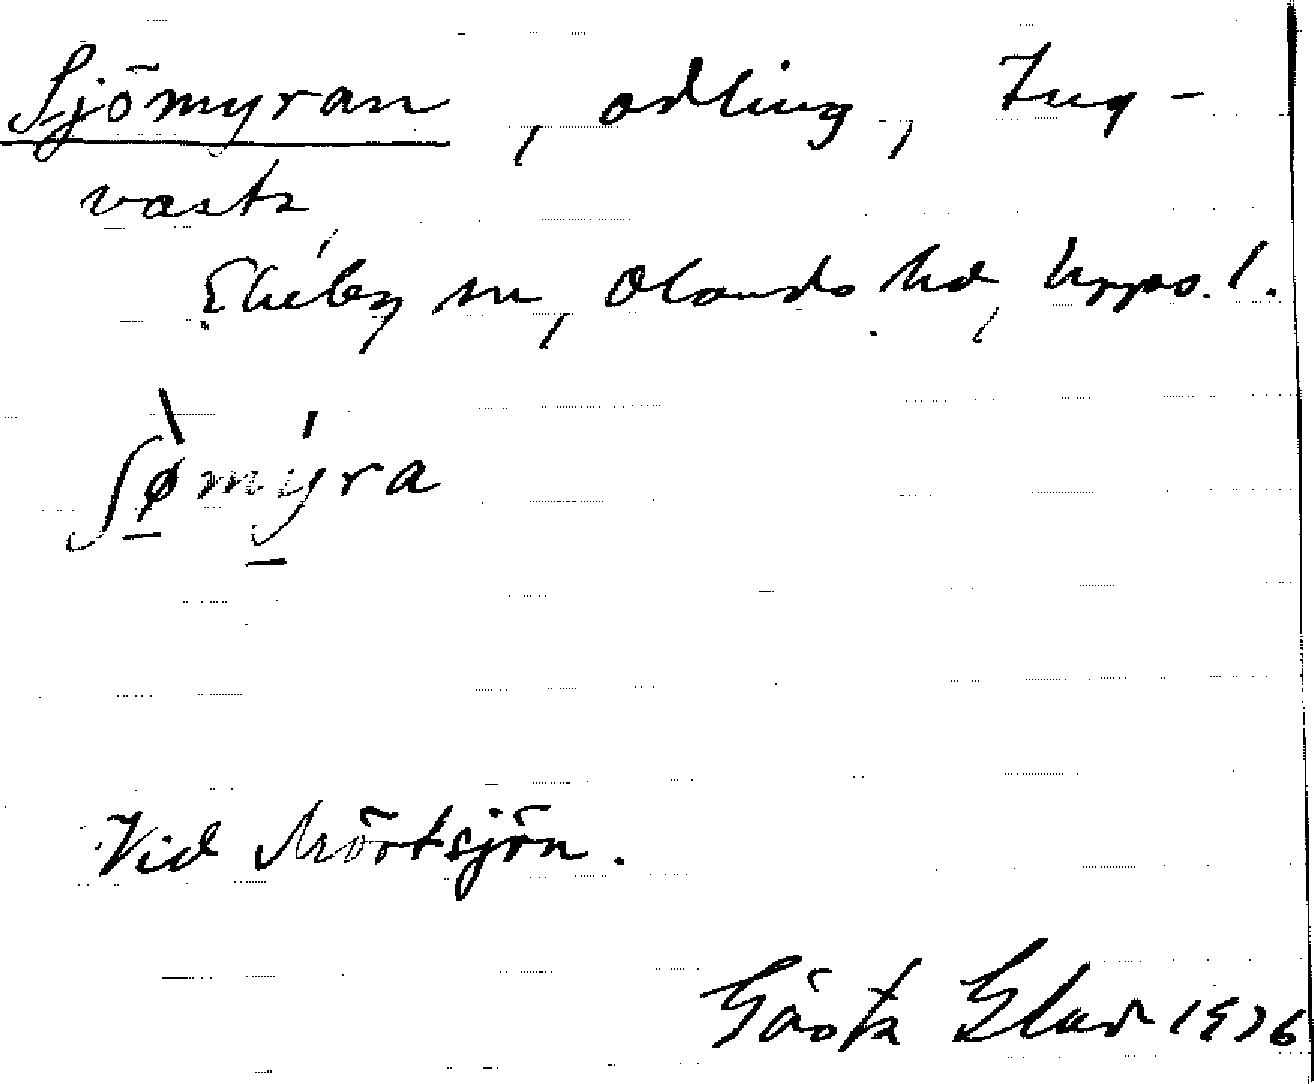 Sjömyran, odling, Tug-
vasta,
Ekeby sn, Olands hd, Upps. l.
ʃø̀mýra
Vid Mörtsjön.
Gösta Elad 1926